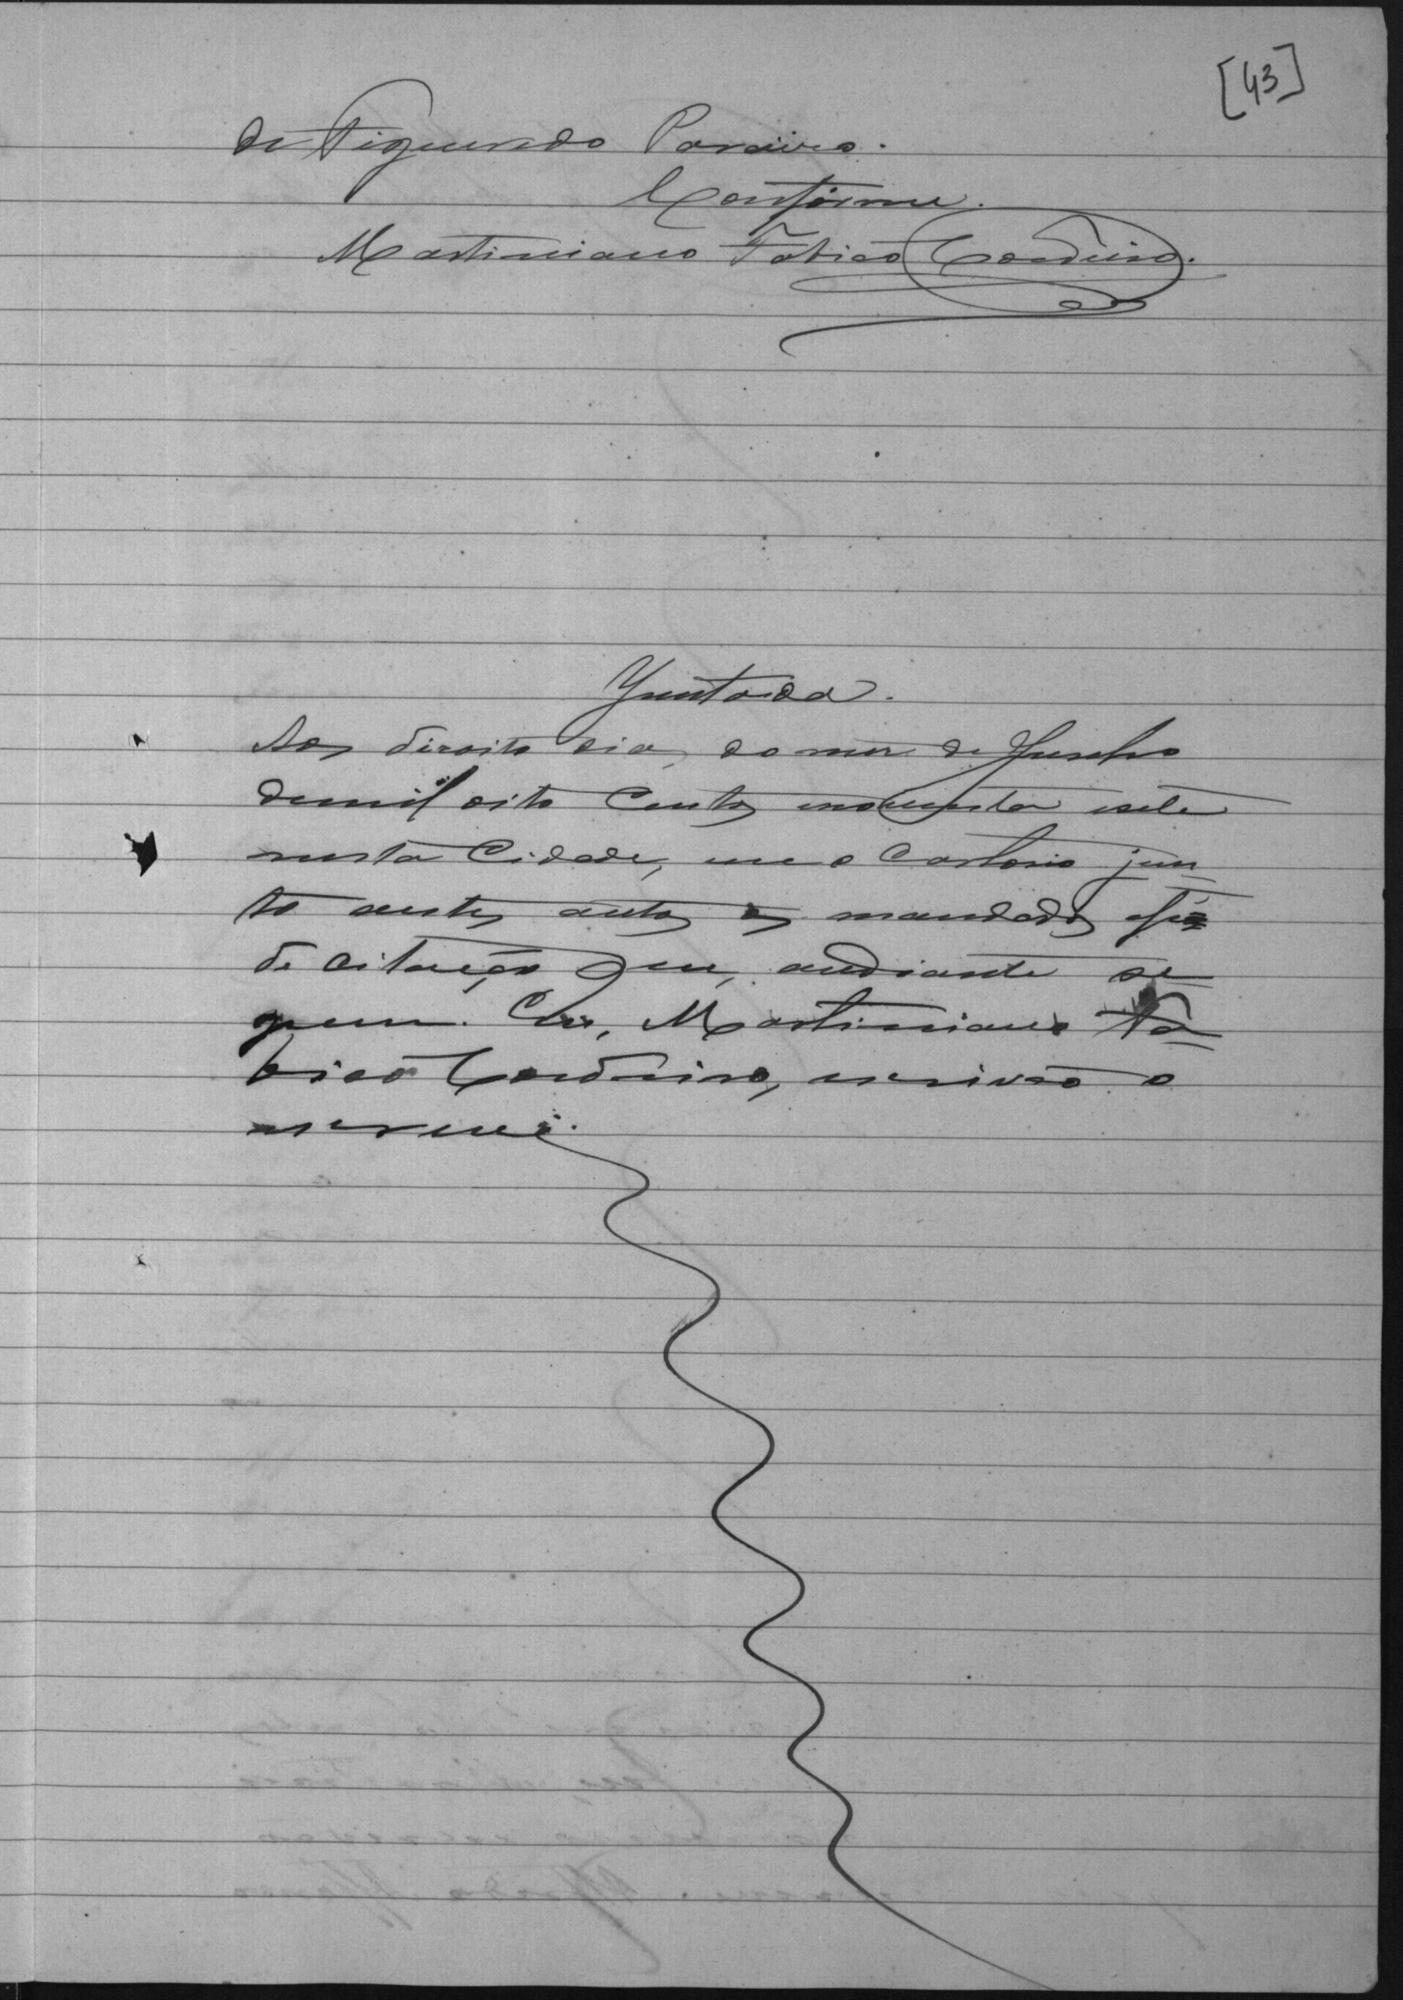 [43]
de Figueiredo Pereira.
Conforme.
Martiniano Fabião Cordeiro.
Juntada.
Aos dezoito dias do mez de Junho
de mil oito centos noventa e sete
nesta Cidade, em o Cartorio jun
to a estes autos os mandados
de citação que, adiante se
guem. Eu, Martiniano Fa
bião Cordeiro, escrivão o
escrevi.